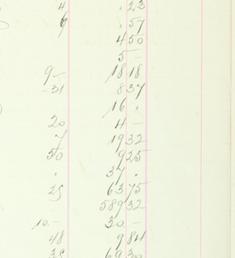 4 . 23
6 . 57
9 4 50
5 -
9 - 18 18
- 31 8 37
16 .
20 4 -
7 19 32
50 9 25
. 37 .
25 63 75
589 32
10 - 30 -
48 9 84
38 69 30